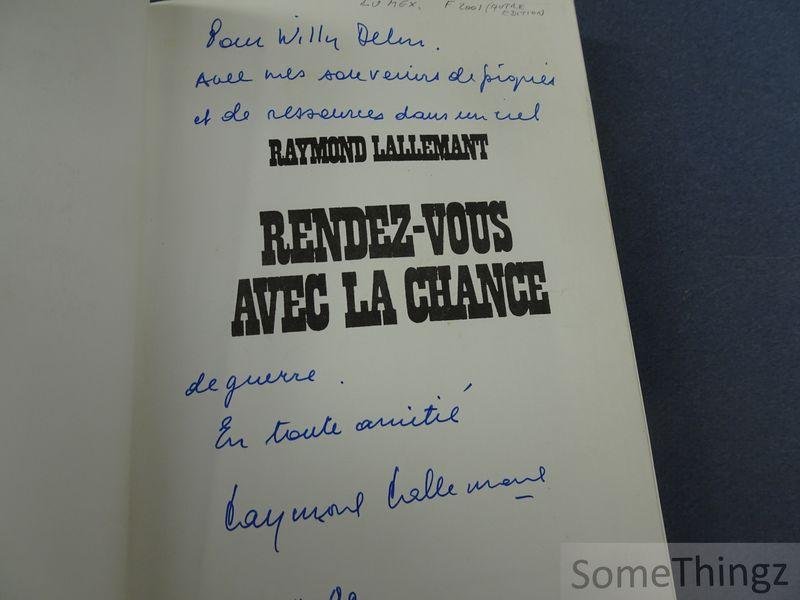 F 2001 (AUTRE
EDITION)
Pour Willy
Avec mes souvenirs de
et de ressources dans un ciel
RAYMOND LALLEMANT
RENDEZ-VOUS
AVEC LA CHANCE
de guerre.
En toute amitié
Raymond Lallemant
SomeThingz